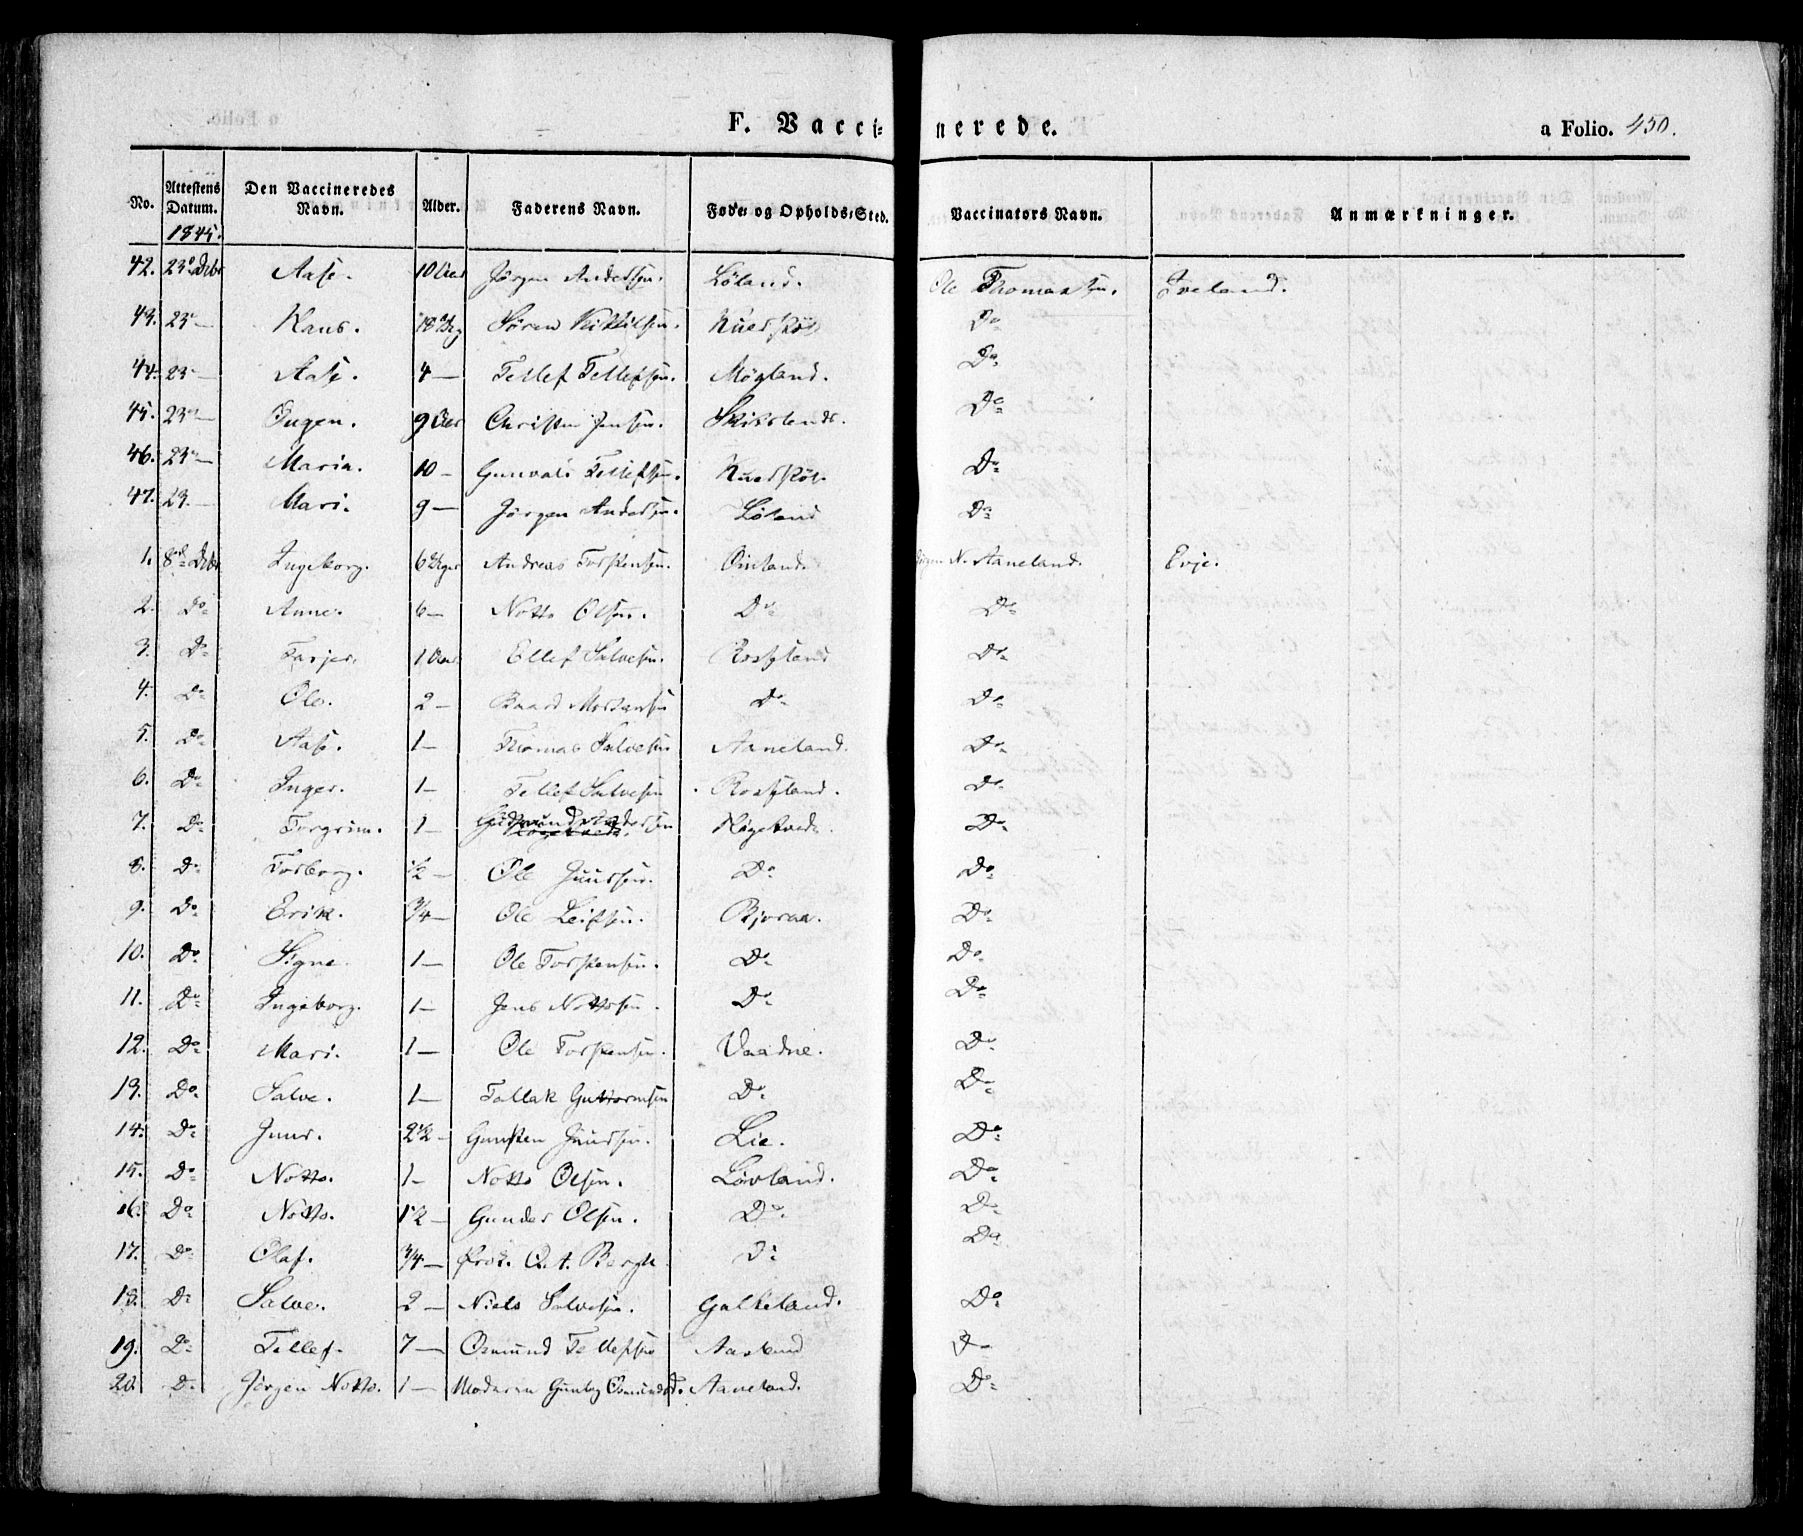 F. Vaccinerede. a Folio. 450.
No. Attestens Datum. 1845. Den Vaccineredes Navn. Alder. Faderens Navn. Føde- og Opholds-Sted. Vaccinators Navn. Anmærkninger.
42. 23 Aase. 10 Jørgen Andersen. Løland. Ole Thomassen. Iveland.
43. 23 Søren Do
44. 23 Aase. 4 — Tellef Tellefsen. Møgland. Do
45. 23 — Ingen. 9 Christen Jensen. Do
46. 23 — Maria. 10 — Gunvald Tellefsen. Do
47. 23. — Mari. 9 — Jørgen Andersen. Løland Do
1. 8 Ingeborg. 6 Andreas Torstensen. N. Aaneland. Evje.
2. Do Anne. 6 — Notto Olsen. Do Do
3. Do Tarjer. 1 Ellef Salvesen. Rosseland Do
4. Do Ole. 2 — Baard Mortensen Do Do
5. Do Aase. 1 — Thomas Salvesen Aaneland. Do
6. Do Inger. 1 — Tellef Salvesen Rosseland. Do
7. Do Torgrim. 1 — Gudmund Andersen Do
8. Do Torborg. 1/2 — Ole Juulsen. Do Do
9. Do Erik. 3/4 — Ole Leifsen. Bjoraa. Do
10. Do Signe. 1 — Ole Torstensen. Do Do
11. Do Ingeborg. 1 — Jens Nottosen. Do Do
12. Do Mari. 1 — Ole Torstensen. Vaadne. Do
13. Do Salve. 1 — Tallak Guttormsen Do Do
14. Do 2 1/2 — Gunsten Lie. Do
15. Do Notto. 1 — Notto Olsen. Løvland. Do
16. Do Notto. 1 1/2 — Gunder Olsen. Do Do
17. Do Olaf. 3/4 — Bergh. Do Do
18. Do Salve. 2 — Niels Salvesen. Galteland. Do
19. Do Tellef. 7 — Osmund Tellefsen Do
20. Do Jørgen Notto. 1 — Moderen Gunborg Osmundsd. Aaneland. Do